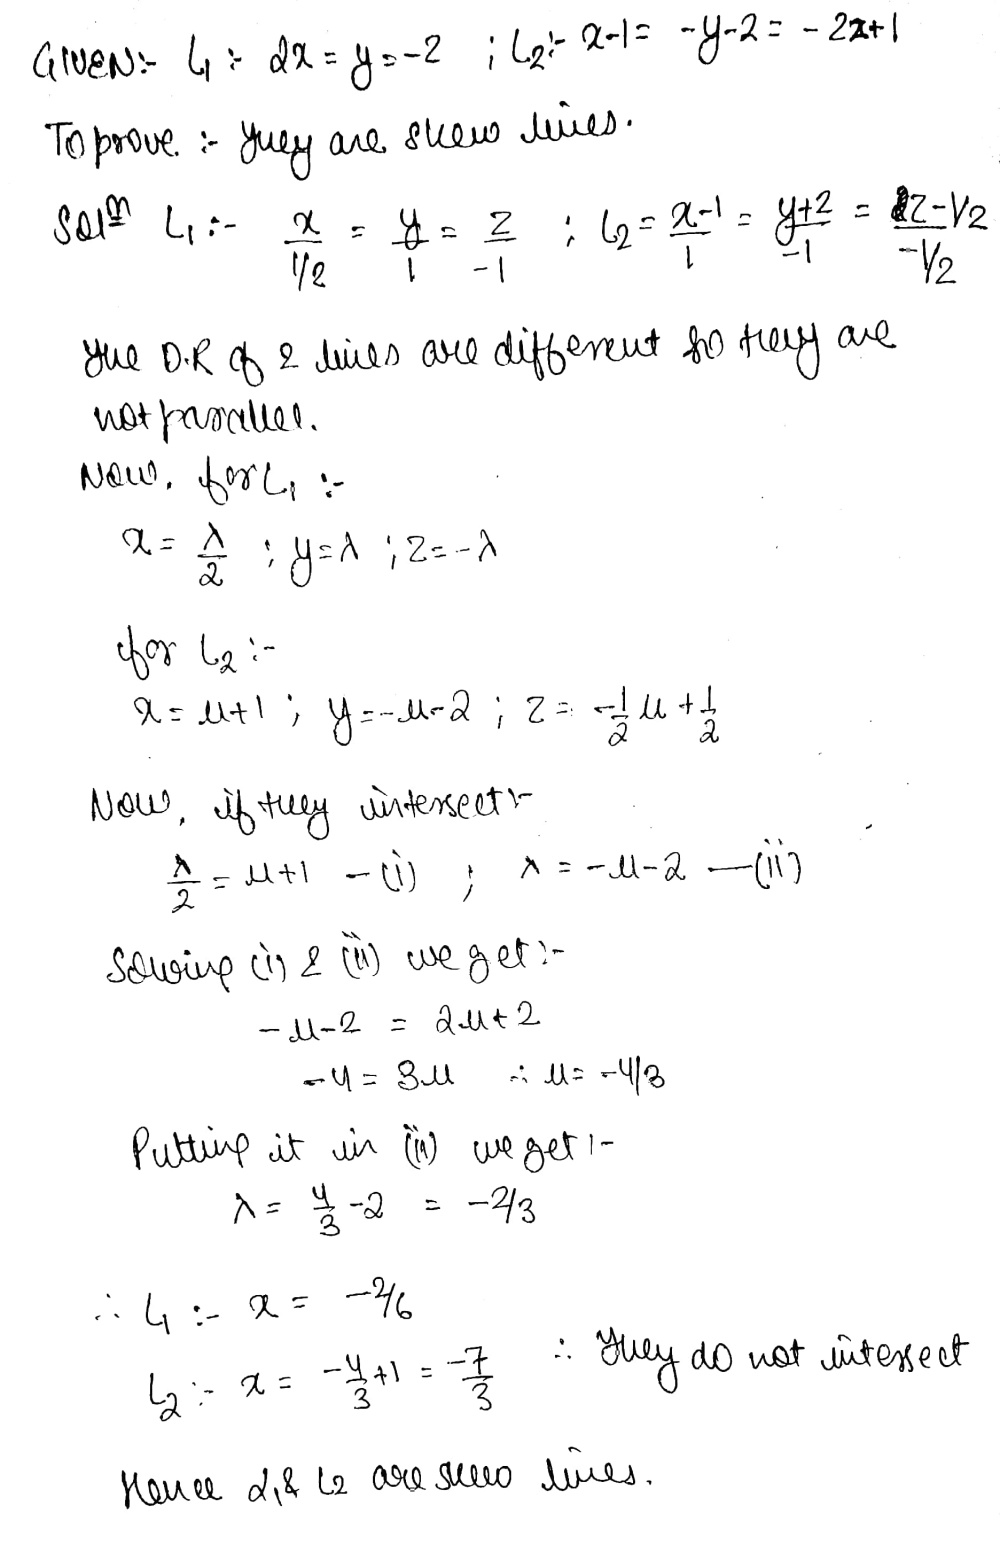 GIVEN:- L₁ :- 2x = y = -2 ; L₂:- x-1 = -y-2 = -2z+1
To prove :- They are skew lines.
Solⁿ L₁ :- x/(1/2) = y/1 = z/-1 ; L₂ = x-1/1 = y+2/-1 = z-1/2/-1/2
The D.R of 2 lines are different so they are
not parallel.
Now, for L₁ :-
x = λ/2 ; y=λ ; z=-λ
for L₂ :-
x = μ+1 ; y = -μ-2 ; z = -1/2 μ + 1/2
Now, if they intersect :-
λ/2 = μ+1 -(i) ; λ = -μ-2 —(ii)
Solving (i) & (ii) we get :-
-μ-2 = 2μ+2
-4 = 3μ ∴ μ= -4/3
Putting it in (ii) we get :-
λ = 4/3 -2 = -2/3
∴ L₁ :- x = -2/6
L₂ :- x = -4/3 +1 = -7/3 ∴ They do not intersect
Hence L₁ & L₂ are skew lines.